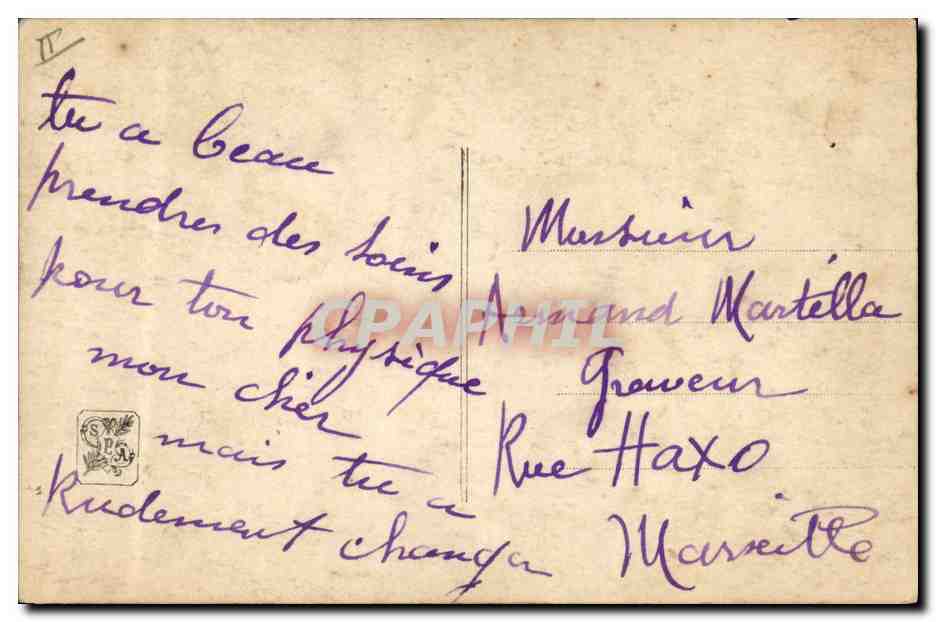 II
tu a beau
prendres des soins
pour ton physique
mon cher
mais tu a
Rudement changa
Monsieur
Armand Martella
Graveur
Rue Haxo
Marseille
SPA
CPAPHIL